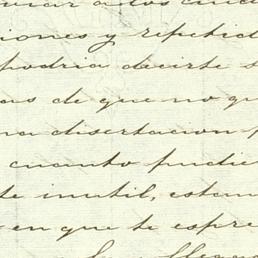 a los
iones y repetid
podria decirte s
as de que no qu
na disertacion p
cuanto pudie
te inutil, estam
en que te espre